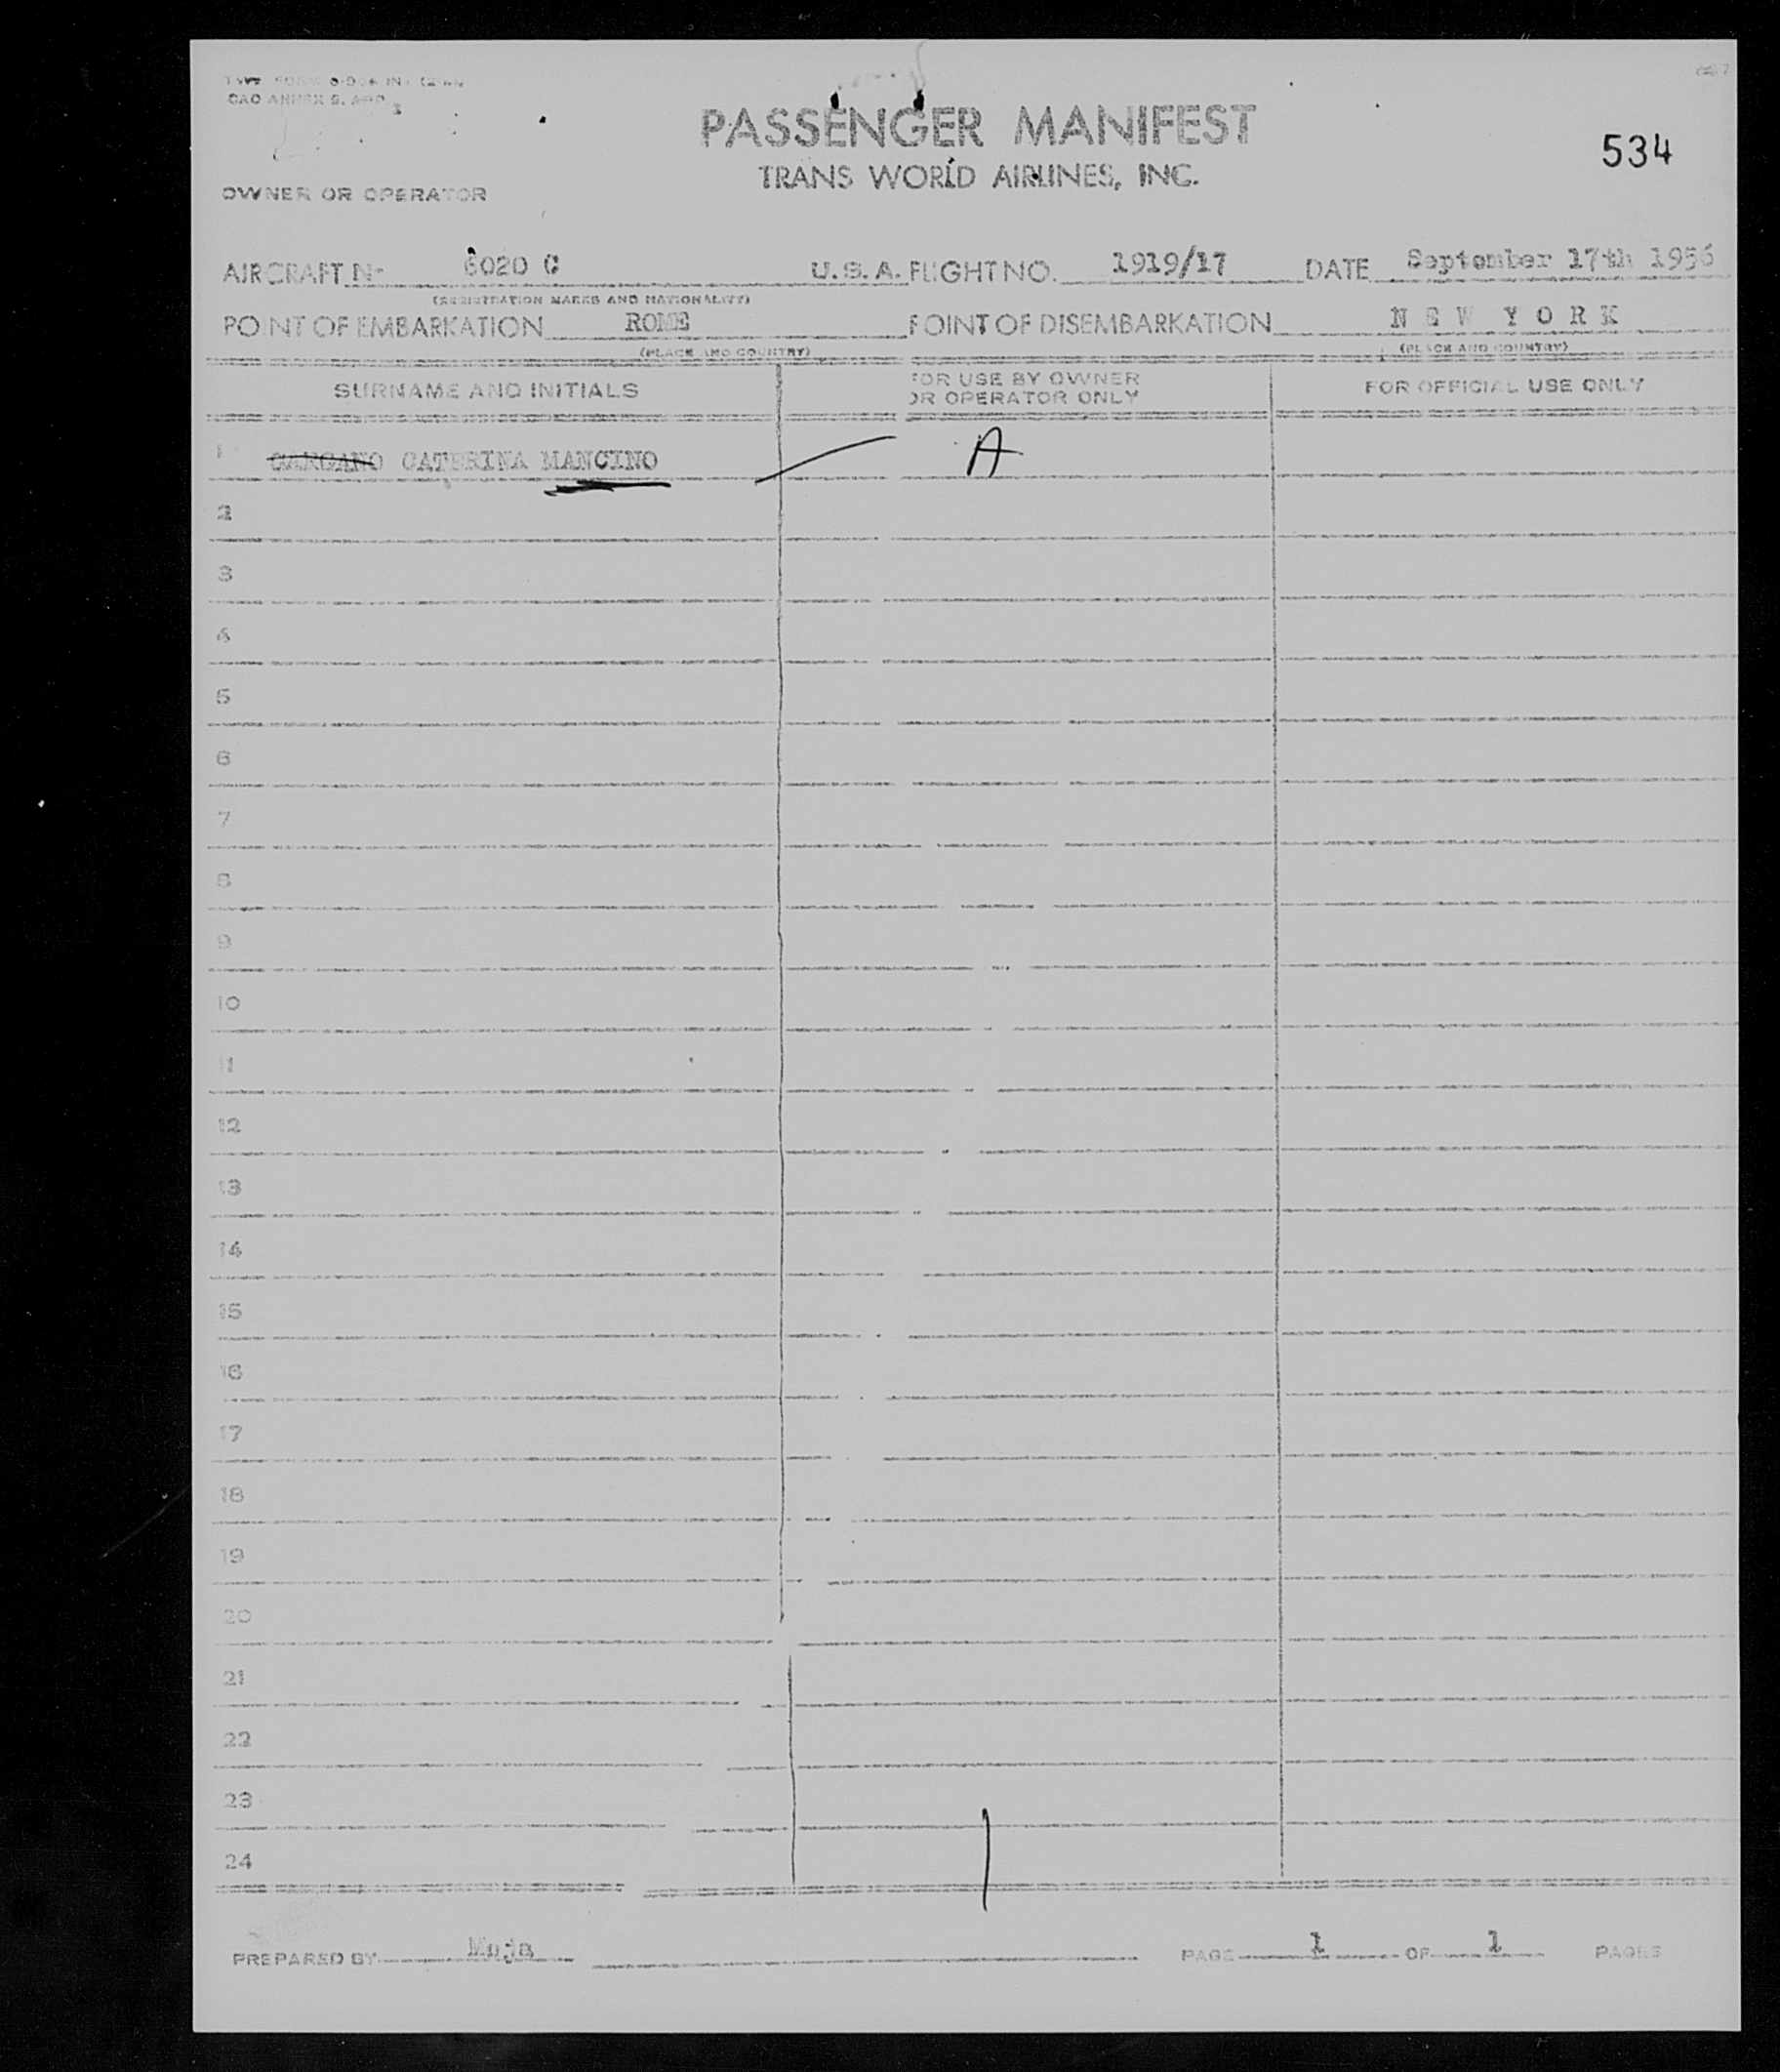 CAO ANNEX 9, APP. 3
PASSENGER MANIFEST
534
TRANS WORLD AIRLINES, INC.
OWNER OR OPERATOR
AIRCRAFT Nr 6020 C U.S.A. FLIGHT NO. 1919/17 DATE September 17th 1956
(REGISTRATION MARKS AND NATIONALITY)
POINT OF EMBARKATION ROME POINT OF DISEMBARKATION N E W Y O R K
(PLACE AND COUNTRY) (PLACE AND COUNTRY)
SURNAME AND INITIALS FOR USE BY OWNER OR OPERATOR ONLY FOR OFFICIAL USE ONLY
1 GARGANO CATERINA MANCINO A
2
3
4
5
6
7
8
9
10
11
12
13
14
15
16
17
18
19
20
21
22
23
24
PREPARED BY PAGE 1 OF 1 PAGES